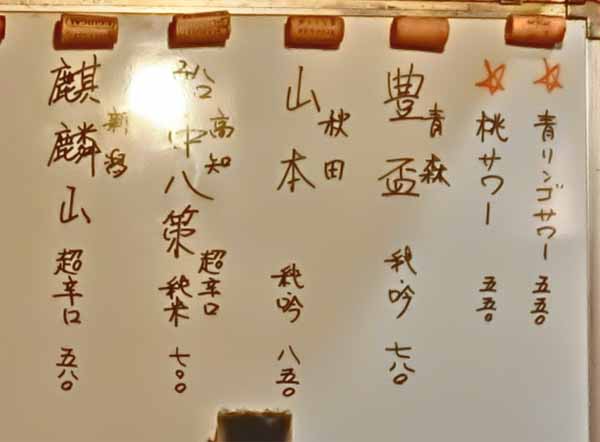 ☆青リンゴサワー 五五〇
☆桃サワー 五五〇
青森
豊盃 純吟 七八〇
秋田
山本 純吟 八五〇
高知 超辛口
船中八策 純米 七〇〇
新潟
麒麟山 超辛口 五八〇